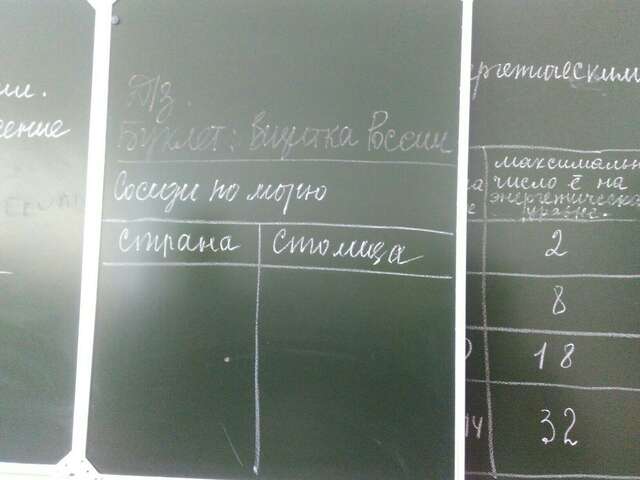 ии.
сение
Т/з.
Буклет: Визитка России
Соседи по морю
Страна Столица
ергетическими
максимальн
число ē на
энергетическо
уровне.
2
8
18
14 32